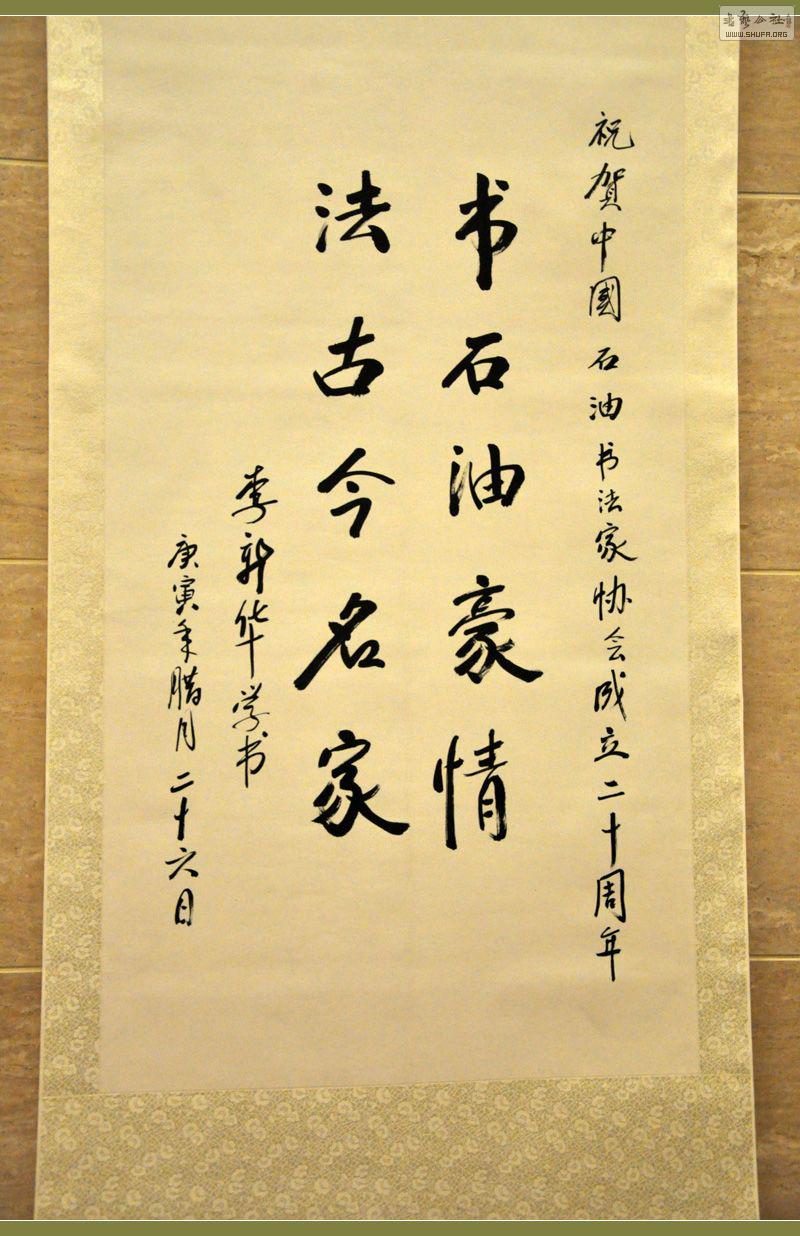 祝贺中國石油书法家协会成立二十周年
书石油豪情
法古今名家
李新华学书
庚寅年腊月二十六日
WWW.SHUFA.ORG